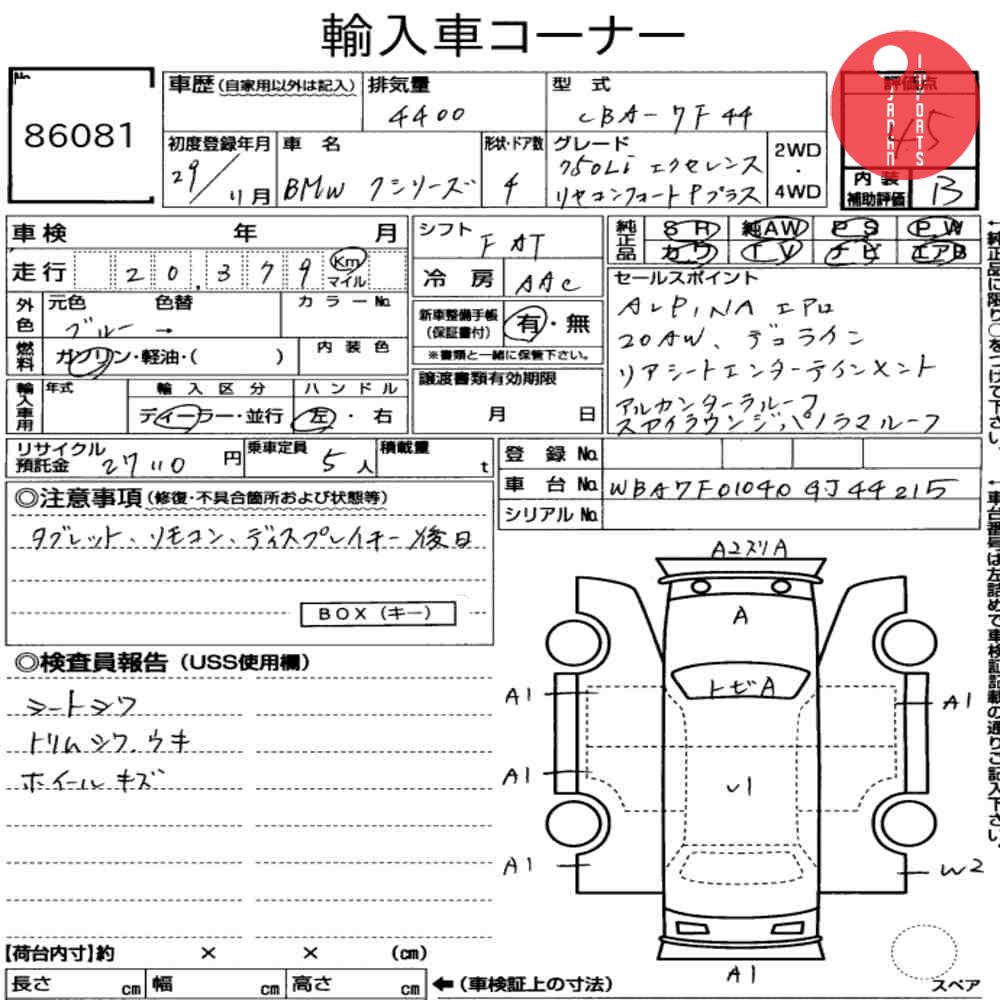 輸入車コーナー
JAPAN IMPORTS
No
86081
車歴(自家用以外は記入)
排気量
4400
型 式
CBA-7F44
評価点
4.5
初度登録年月
29/11月
車 名
BMW 7シリーズ
形状・ドア数
4
グレード
750Li エクセレンス
リヤコンフォートPプラス
2WD
・
4WD
内装補助評価
B
車検 年 月
走行 20,379 Km マイル
シフト
FAT
冷房 AAC
純正品
SR 純AW PS PW
カワ TV ナビ エアB
外色
元色 色替 カラーNo.
ブルー →
燃料
ガソリン・軽油・( )
内装色
新車整備手帳(保証書付)
有・無
※書類と一緒に保管下さい。
セールスポイント
ALPINA エアロ
20AW、デコライン
リアシートエンターテインメント
アルカンターラルーフ
スカイラウンジパノラマルーフ
輸入車用
年式
輸入区分
ディーラー・並行
ハンドル
左・右
譲渡書類有効期限
月 日
リサイクル預託金 27110円
乗車定員 5人
積載量 t
登録No.
車台No. WBA7F01040GJ44215
シリアルNo.
◎注意事項(修復・不具合箇所および状態等)
タブレット、リモコン、ディスプレイキー後日
BOX(キー)
◎検査員報告(USS使用欄)
シートシワ
トリムシワ、ウキ
ホイールキズ
A2スリA
A
トビA
A1
A1
A1
U1
A1
W2
A1
スペア
【荷台内寸】約 × × (cm)
長さ cm 幅 cm 高さ cm
←(車検証上の寸法)
←純正品に限り○をつけて下さい。
←車台番号は左詰めで車検証記載の通りご記入下さい。